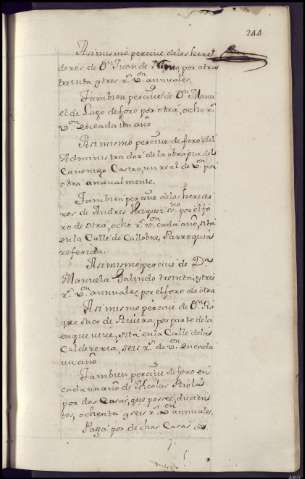 244
Asimismo percive de los hered.
deros de Dn. Juan de por otra
treinta y tres rs. vn. annuales.
Tambien percive de Dn. Manu
el de Lago de foro por otra, ocho rs.
vn. en cada un año
Asimismo percive de foro del
Administrador de la obra pia del
Canonigo Castro, un real de vn. por
otra annualmente.
Tambien percive de los herede
ros de Andres Vazquez por el fo
ro de otra, ocho rs. vn. cada año, sita
en la Calle de Parroquia
referida.
Asimismo percive de Da.
Manuela Galindo treinta y tres
rs. vn. annuales, por el foro de otra
Asimismo percive de Dn.
de Riveira, por parte de la
que vive, sita en la Calle de la
Caldereria, seis rs. de vn. en cada
un año
Tambien percive de foro en
cada un año de Nicolas
por dos Casas, que posee, ducien
tos, ochenta y seis rs. vn. annuales.
Paga por dichas Casas de